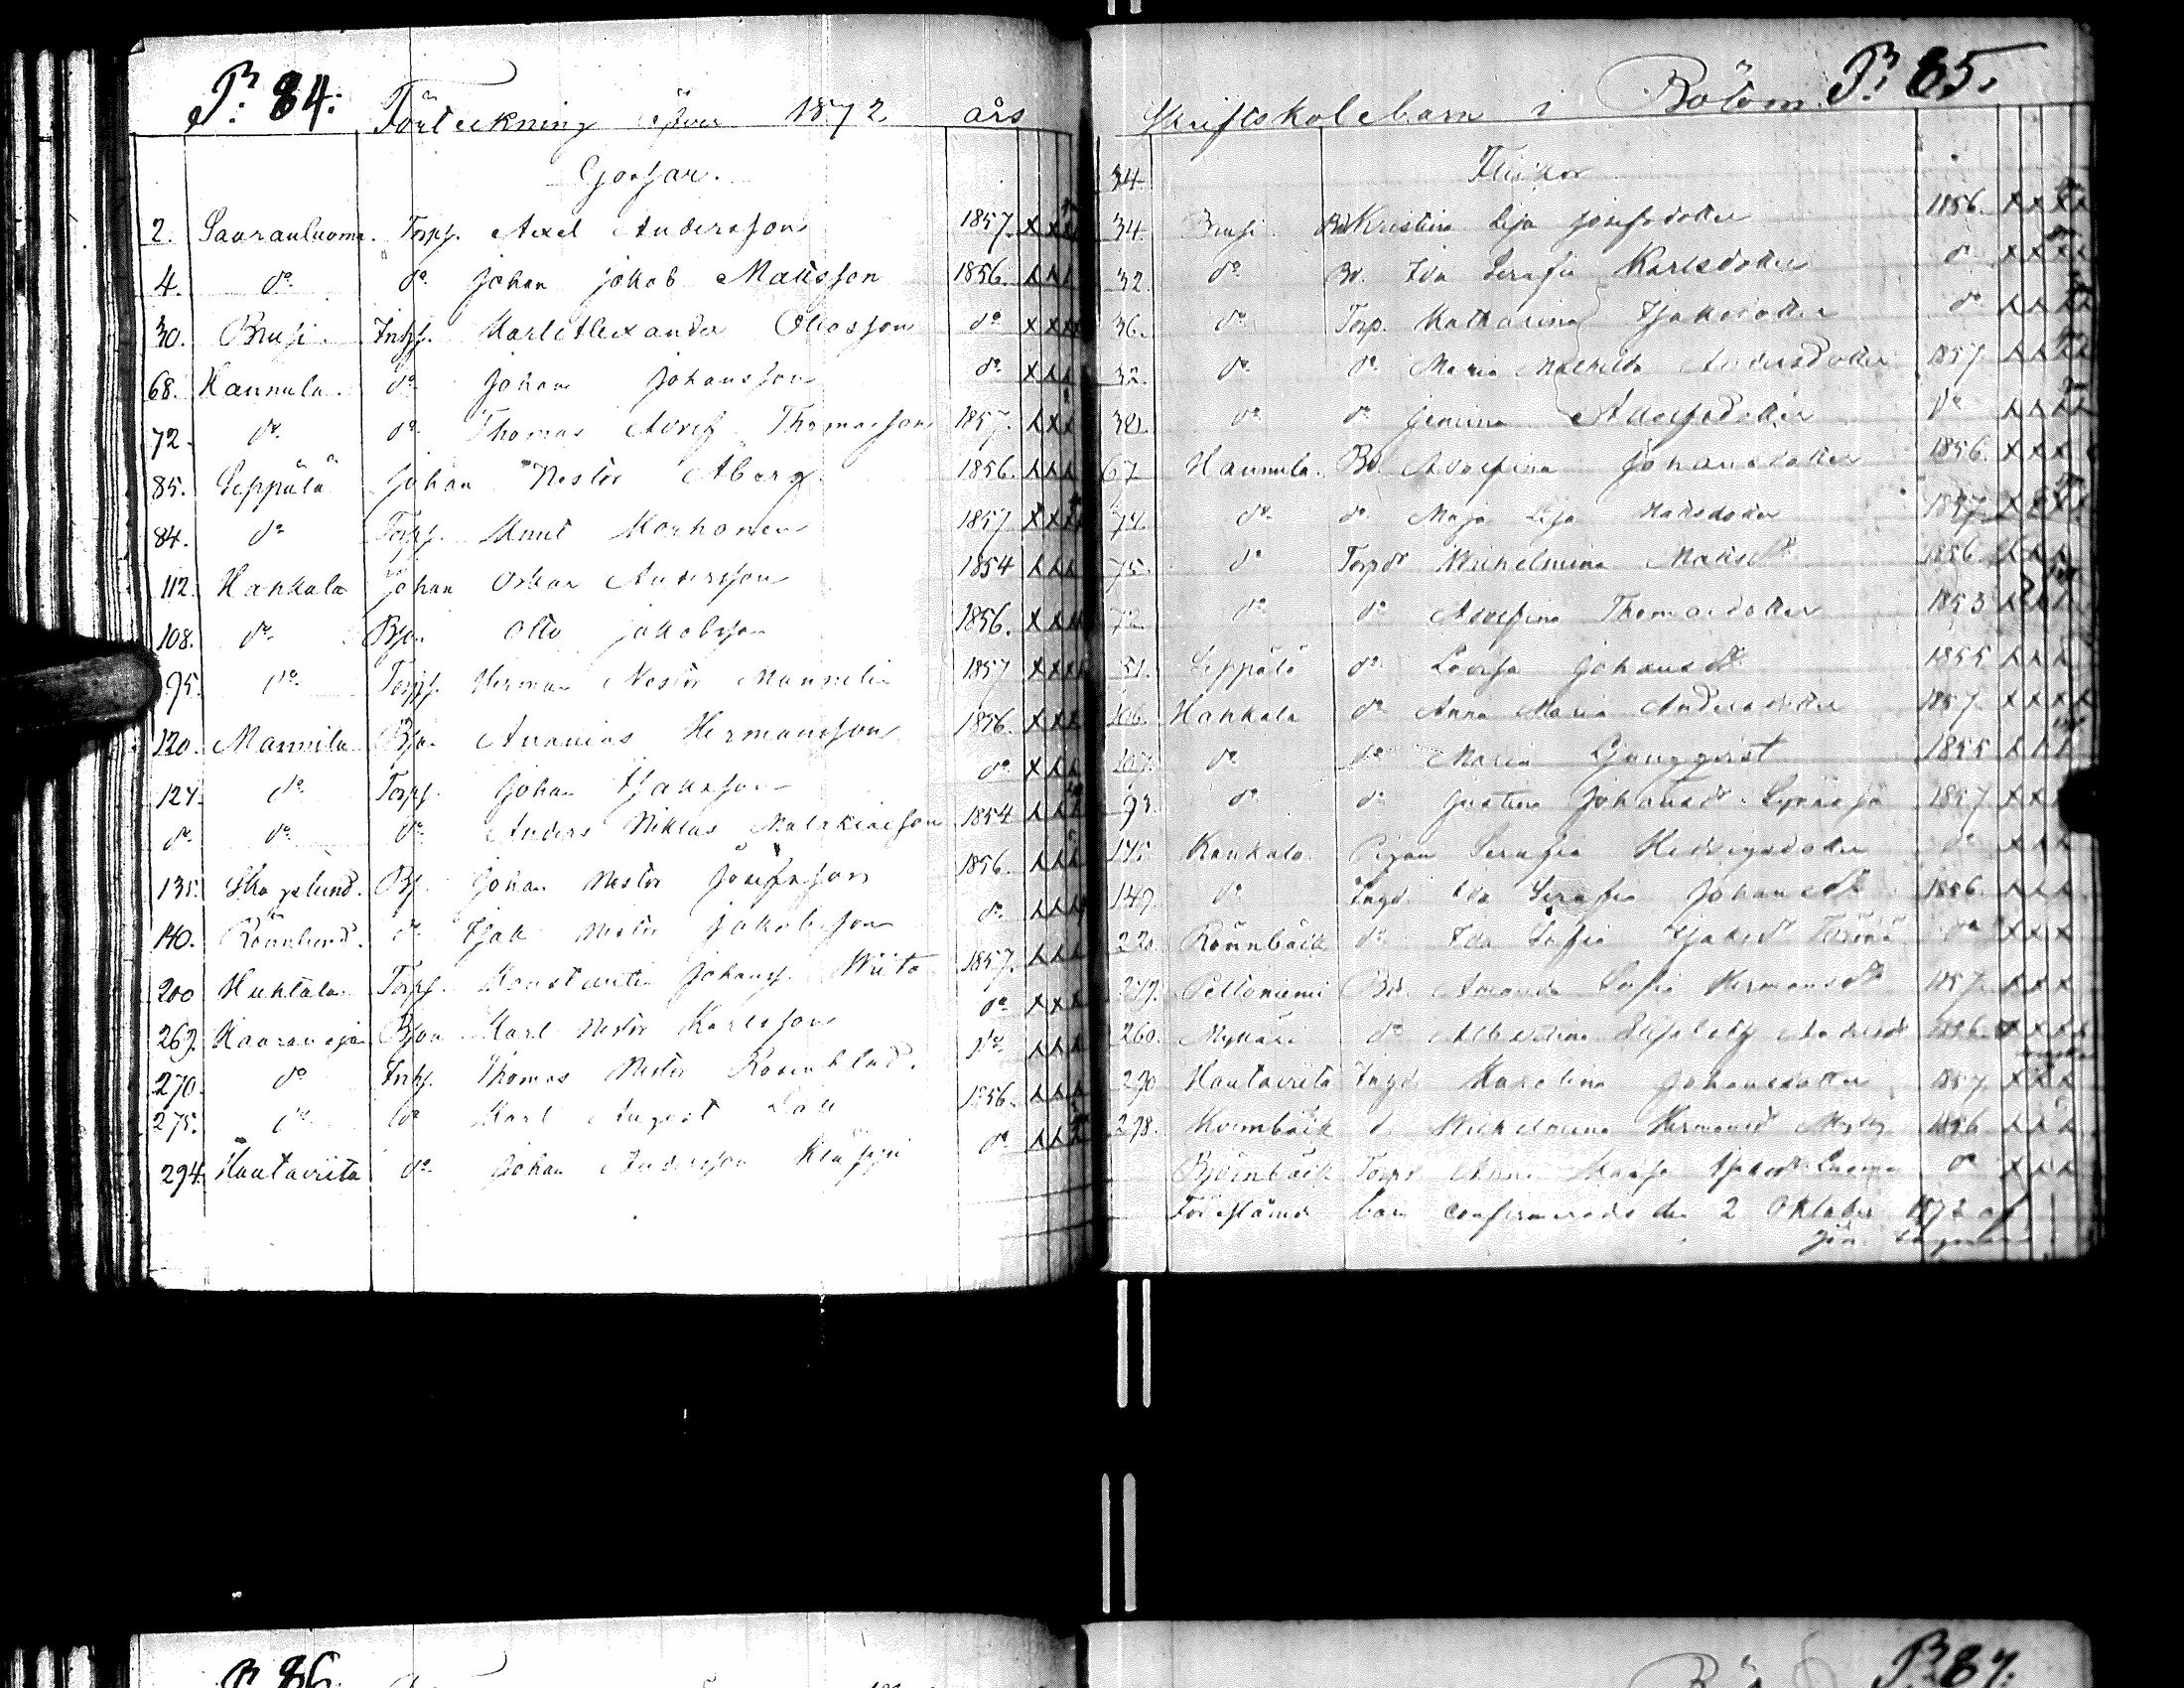 P. 84. Förteckning öfver 1872 års
Gossar.
2. Saarauluoma. Torps. Axel Andersson 1857. x x x
4. do do Johan Jakob Mattsson 1856. x x x
30. Brusi. Inhs. Karl Alexander Eliasson do x x x
68. Hannula. do Johan Johansson do x x x
72. do do Thomas Adolf Thomasson 1857. x x x
85. Leppälä Johan Nestor Åberg 1856. x x x
84. do Torps. Knut Korhonen 1857 x x x
112. Hankala Johan Oskar Andersson 1854 x x x
108. do Bson Otto Jakobsson 1856. x x x
95. do Torps. Herman Nestor Mannelin 1857 x x x
120. Mannila Bson Ananias Hermansson 1856. x x x
127. do Torps. Johan Isaksson do x x x
do do do Anders Niklas Malakiasson 1854 x x x
135. Skogslund. Bs. Johan Nestor Josefsson 1856. x x x
140. Rönnlund. do Isak Nestor Jakobsson do x x x
200 Huhtala Torps. Konstantin Johanss. Wiita 1857. x x x
269. Haaranoja Bson Karl Nestor Karlsson do x x x
270. do Inhs. Thomas Nestor Rosenblad. do x x x
275. do do Karl August 1856. x x x
294. Hautaviita do Johan Andersson do x x x
Skriftskolebarn i Bötom. P. 85.
34. Flickor
34. Brusi Bd Kristina Lisa Josefsdotter 1856. x x x x
32. do Bd. Ida Serafia Karlsdotter do x x x x
36. do Torp. Katharina Isaksdotter do x x x x
32. do do Maria Mathilda Andersdotter 1857 x x x x
do do Jemina Adolfsdotter do x x x x
67 Hannula. Bd. Adolfina Johansdotter 1856. x x x
74. do do Maja Lisa Matsdotter 1857 x x x x
75. do Torpd Wilhelmina Matsdt 1856 x x x
72 do do Adolfina Thomasdotter 1853 x x x
51. Leppälä do Lovisa Johansdt 1855 x x x
106. Hankala do Anna Maria Andersdotter 1857. x x x x
107. do do Maria Ljungqvist 1855 x x x
93. do do Justina Johansd. 1857 x x x
Kankala Pigan Serafia Hedvigsdotter do x x x
149. do Ingd Ida Serafia Johansdt 1856. x x x
220. Rönnbäck do Ida Sofia Isaksdt do x x x
Peltoniemi Bd. Amanda Sofia Hermansdt 1857. x x x
260. do Albertina Elisabeth 1856. x x x x
290 Hautaviita Ingd. Karolina Johansdotter 1857. x x x
298. Wilhelmina Hermansd 1856 x x x
Björnbäck Torpd Anna Isaksdt do x x x
Förestående barn confirmerades den 2 Oktober 1872 af